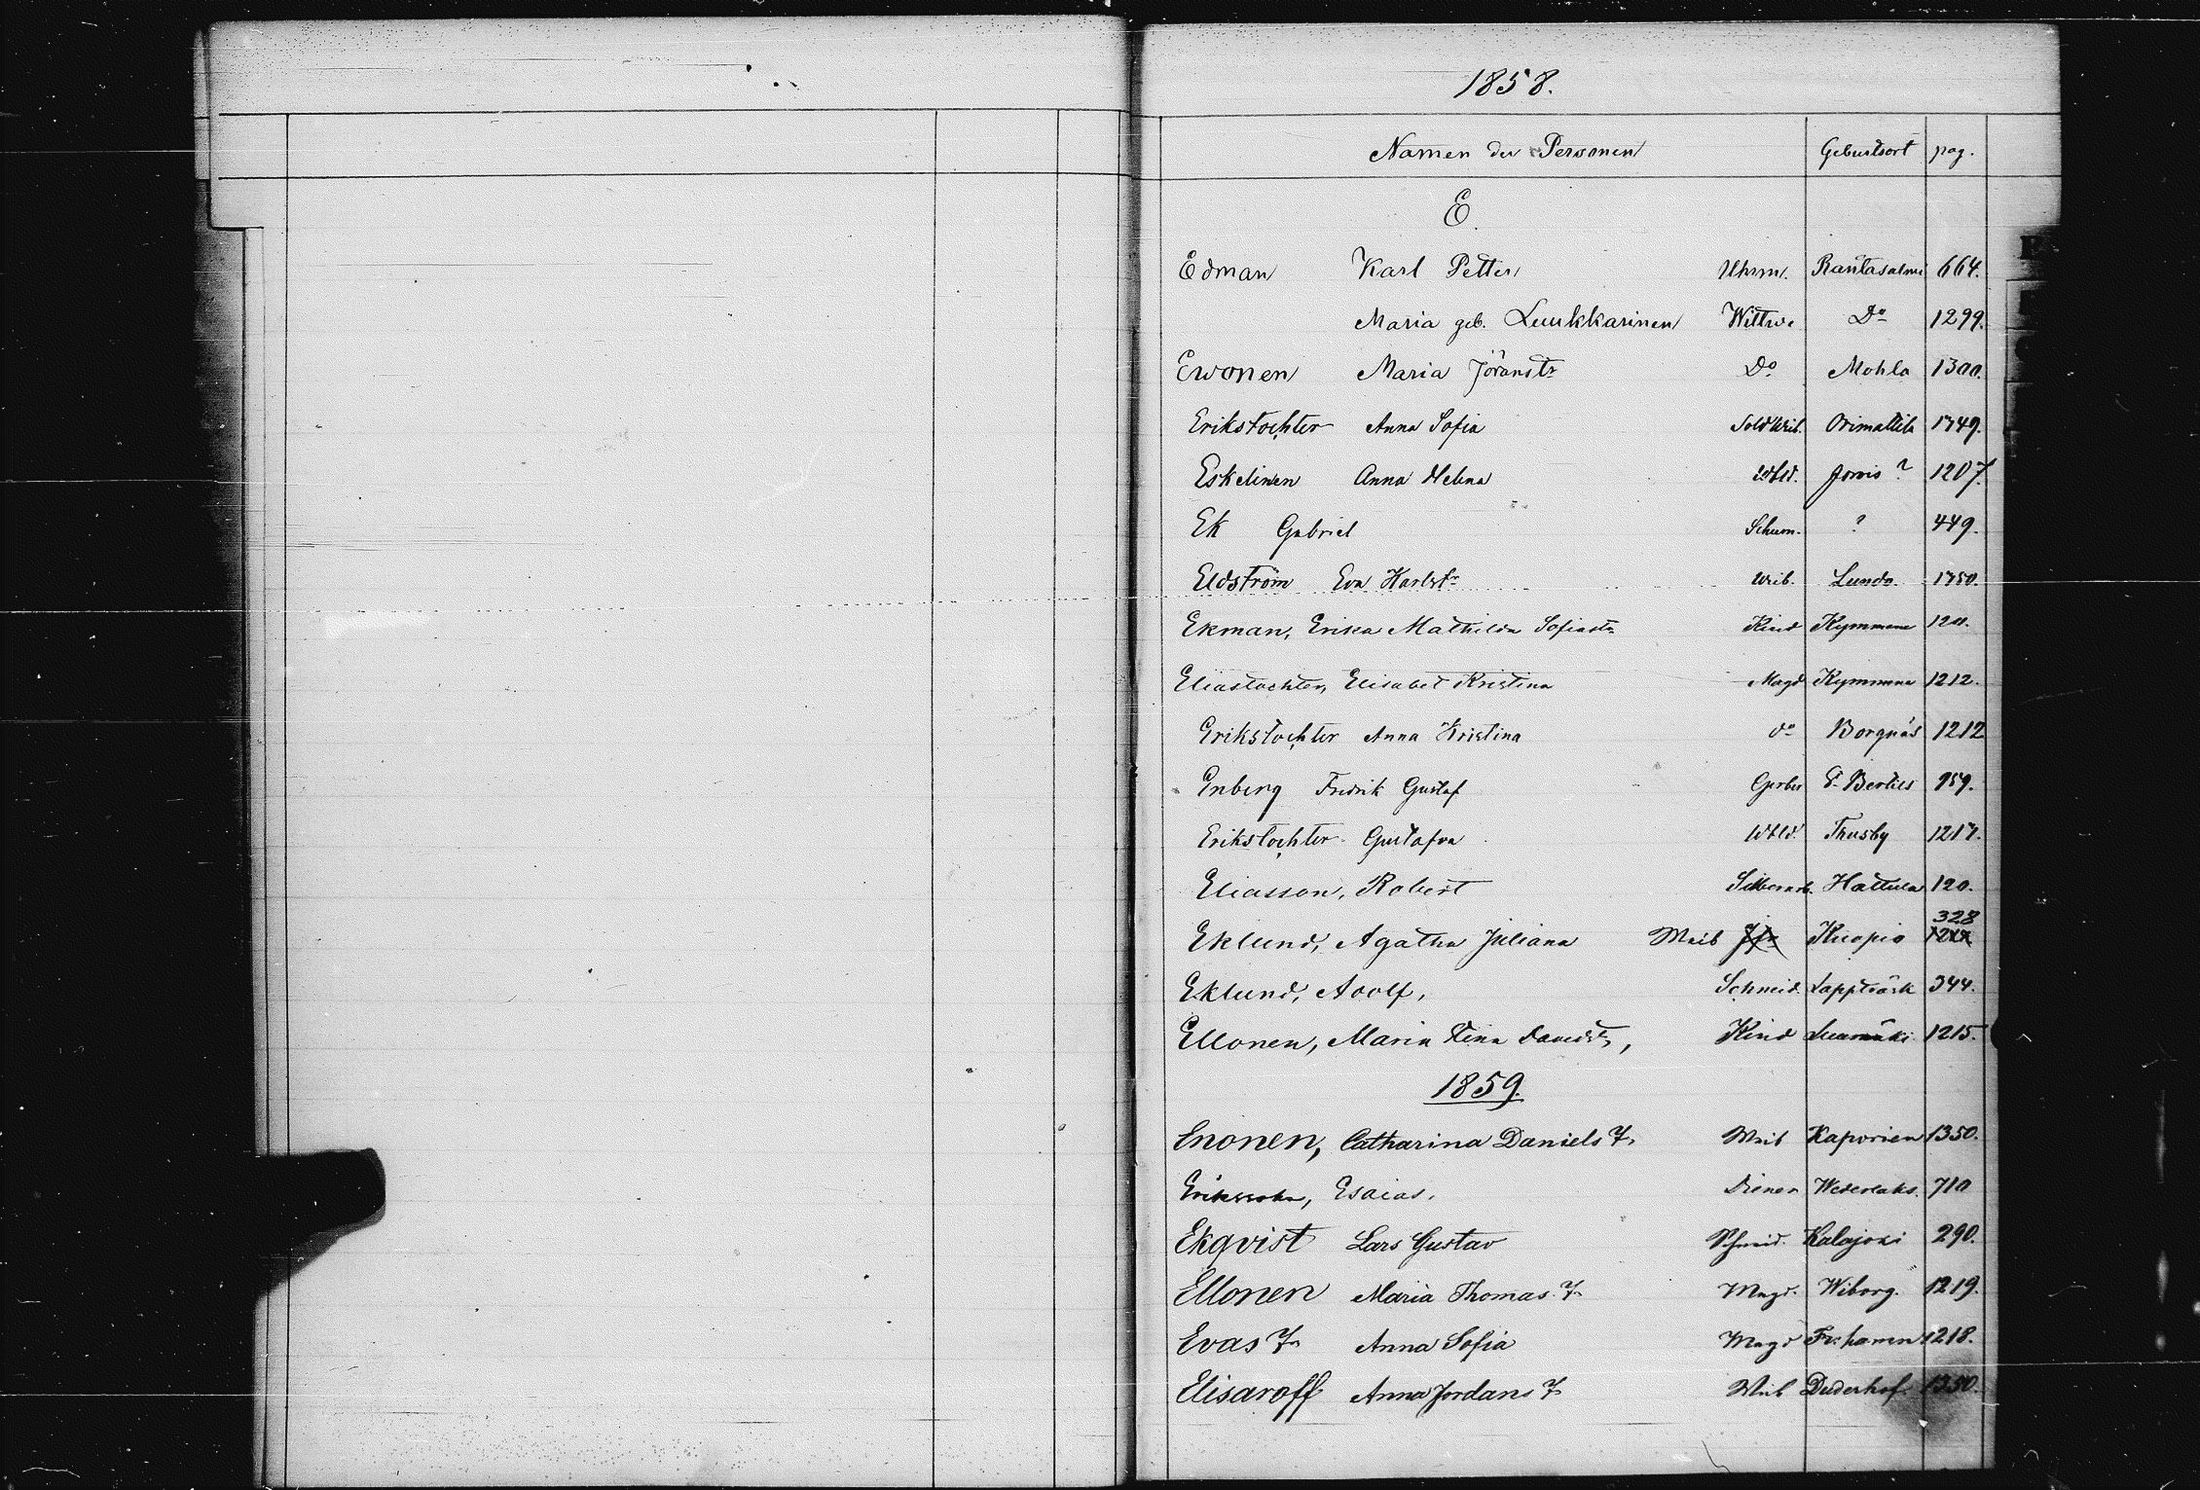 1858.
Namen der Personen Geburtsort pag.
E.
Edman Karl Petter Uhrm. Rantasalmi 664.
Maria geb. Luukkarinen Wittwe Do 1299.
Ewonen Maria Jöranstr Do Mohla 1300.
Erikstochter Anna Sofia Sold Weib. Orimattila 1749.
Eskelinen Anna Helena Jorois ? 1207.
Ek Gabriel Schum. ? 449.
Eldström Eva Karlstr Weib. Lundo. 1750.
Ekman, Erika Mathilda Sofiastr Kind Kymmene
Eliastochter, Elisabet Kristina Magd Kymmene 1212.
Erikstochter Anna Kristina do Borgnäs 1212
Enberg Fredrik Gustaf Gerber St Bertils 959.
Erikstochter Gustafva Thusby 1217.
Eliasson, Robert Silberarb. Hattula 120.
328
Eklund, Agatha Juliana Weib Kuopio
Eklund, Adolf, Schneid. Lappträsk 344.
Ellonen, Maria Stina Davidstr, Kind 1215.
1859.
Enonen, Catharina Daniels T. Weib Kaporien 1350.
Eriksson, Esaias. Diener Wederlaks. 710
Ekqvist Lars Gustav Schmid. Kalajoki 290.
Ellonen Maria Thomas T. Magd. Wiborg. 1219.
Evas T. Anna Sofia Magd Fr:hamn 1218.
Elisaroff Anna Jordans T. Weib Duderhof. 1350.